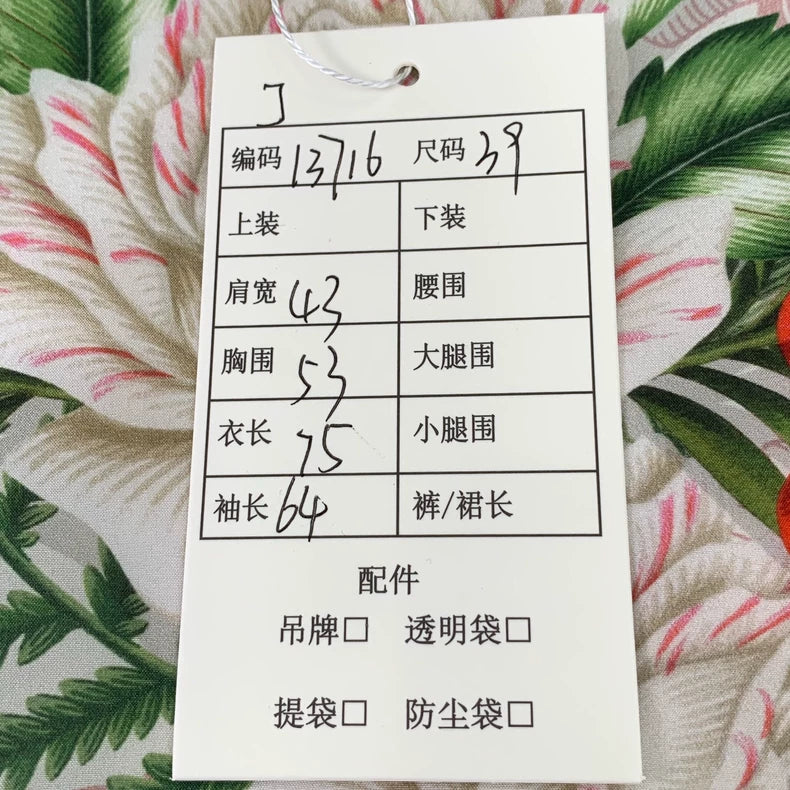 J
编码 13716 尺码 39
上装 下装
肩宽 43 腰围
胸围 53 大腿围
衣长 75 小腿围
袖长 64 裤/裙长
配件
吊牌□ 透明袋□
提袋□ 防尘袋□